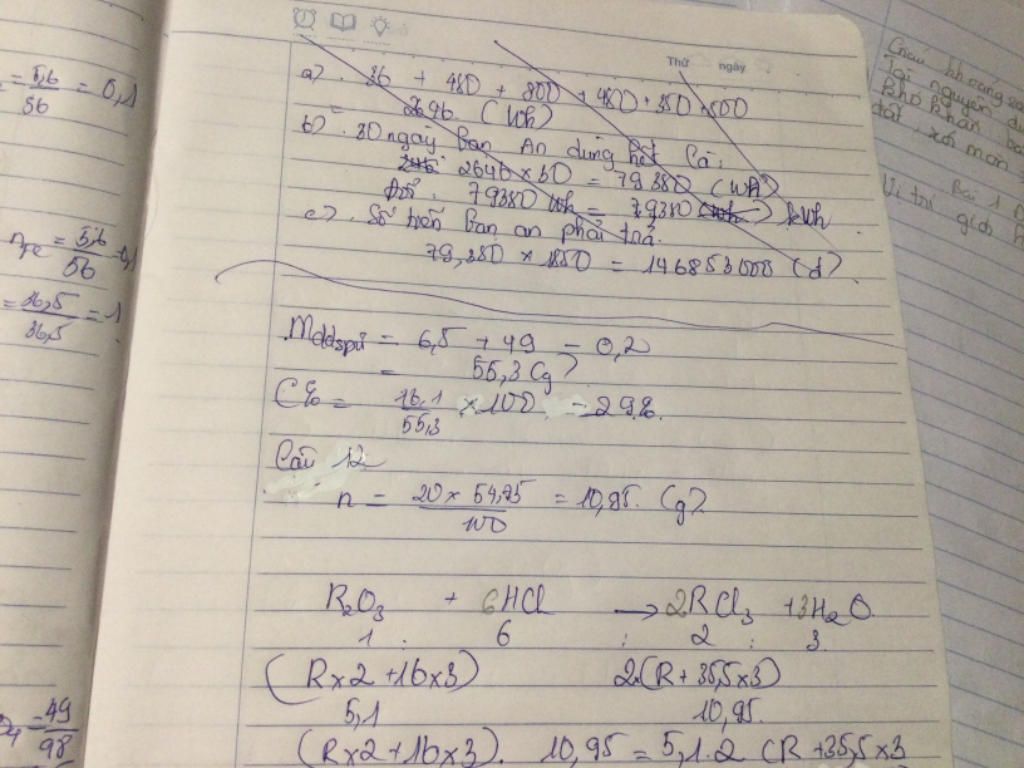 = 5,6/56 = 0,1
nFe = 5,6/56 = 0,1
= 36,5/36,5 = 1
= 49/98
Thứ ngày
a) . 36 + 480 + 800 + 480 + 350 + 500
= 2646 (Wh)
b) . 30 ngày bạn An dùng hết là:
2646 x 30 = 79380 (Wh)
Đổi : 79380 Wh = 79380 kWh
c) . Số tiền bạn an phải trả.
79,380 x 1850 = 146853000 (đ)
Mddspứ = 6,5 + 49 - 0,2
= 55,3 (g)
C% = 16,1/55,3 x 100 = 29%.
Câu 12
n = 20 x 54,75/100 = 10,95. (g).
R2O3 + 6HCl → 2RCl3 + 3H2O.
1 : 6 : 2 : 3
(R x 2 + 16 x 3) 2(R + 35,5 x 3)
5,1 10,95.
(R x 2 + 16 x 3). 10,95 = 5,1.2 (R + 35,5 x 3
khó khăn
Bài 1
Vị trí giới h